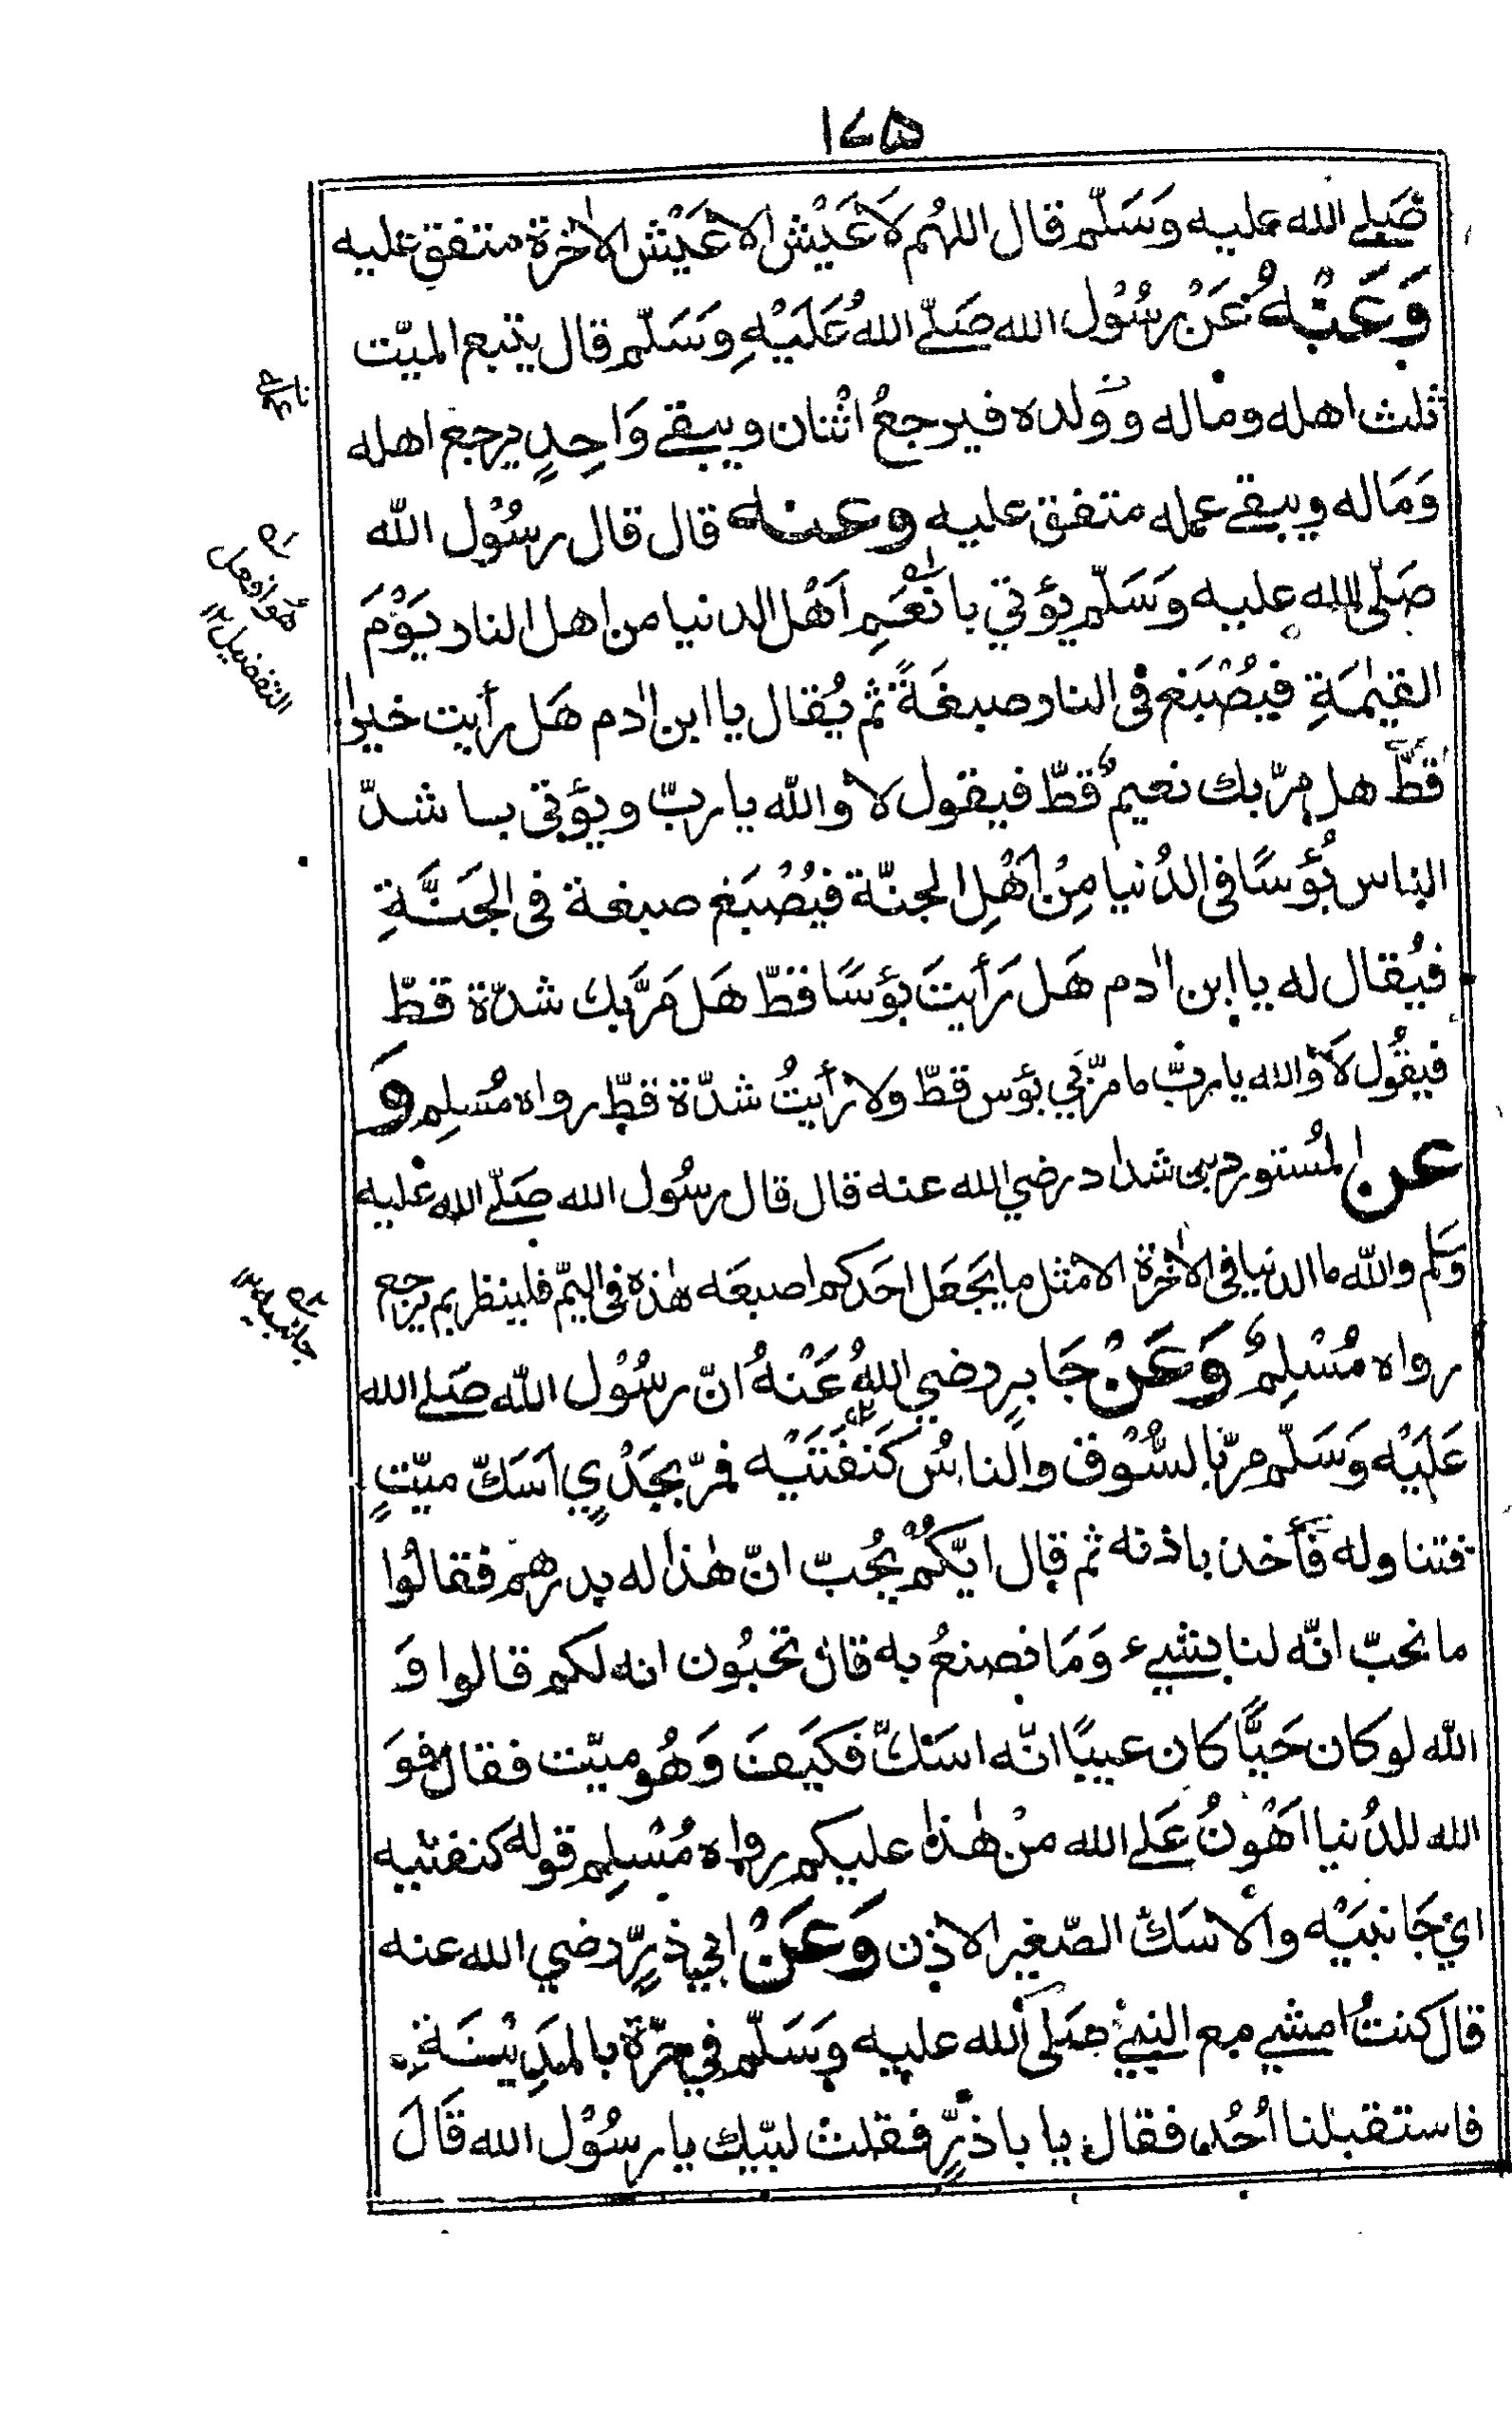 ۱۷۵
صَلے الله عليه وَسَلّم قال اللهُم لَا عَيْشَ الا عَيْش الاٰخرة متفق عليه
وَعَنْهُ عَنْ رسُوْل الله صَلّے اللهُ عَلَيْهِ وَسَلّم قال يتبع الميّت
ثلث اهله وماله وولده فيرجعُ اثْنان ويبقے وَاحِدٍ يرجع اهله
وَمَاله ويبقے عمله متفق عليه وعنه قال قال رسُوْل الله
صَلّى الله عليه وَسَلّم يؤتي بانْعَمِ اَهْل الدنيا من اهل النار يَوْمَ
القيٰمَةِ فيُصْبَغ فى النار صبغَةً ثم يُقال يا ابن اٰدم هَل رأيت خيرا
قطّ هل مرّ بك نعيمٌ قطّ فيقول لا والله يا ربّ ويؤتى باشدّ
الناس بُؤسًا فى الدُنيا مِنْ اَهْلِ الجنّة فيُصْبَغ صبغة فى الجَنَّةِ
فيُقال له يا ابن اٰدم هَل رَأيتَ بؤسًا قطّ هَل مَرَّ بك شدّة قطّ
فيقُول لَا وَالله يا ربّ ما مرّ بي بؤس قطّ ولا رأيتُ شدّة قطّ رواه مُسْلِم وَ
عن المُستورد بن شداد رضي الله عنه قال قال رسُول الله صَلّے الله عليه
وَسَلم والله ما الدنيا فى الاٰخرة الا مثل ما يَجعَل احَدكم اصبعَه هٰذه فى اليَمّ فلينظر بم يرجع
رواه مُسْلِمٌ وَعَنْ جَابِرٍ رضي اللهُ عَنْهُ انّ رسُوْل الله صَلے الله
عَلَيْه وَسَلّم مرّ بالسُّوْق والناسُ كَنَفَتَيْه فمرّ بجَدْيٍ اَسَكّ ميّتٍ
فتناوله فأخذ باذنه ثم قال ايّكُمْ يُحِبّ انّ هٰذا له بدرهم فقالوُا
ما نحبّ انّه لنا بشيء وَمَا نصنعُ به قال تحبُون انه لكم قالوا وَ
الله لو كان حَيًّا كان عيبًا انّه اسَكّ فكَيفَ وَهُو ميّت فقال فوَ
الله للدُنيا اَهْونُ عَلے الله منْ هٰذا عليكم رواه مُسْلِم قوله كنفتيه
ايْ جَانبَيْه والاسَكّ الصّغير الاذن وَعَنْ ابي ذرٍّ رضي الله عنه
قال كنتُ امشي مع النبيّ صَلى الله عليه وَسَلّم في حَرّة بالمَدِيْنَةِ
فاستقبلنا اُحُد فقال يا با ذرٍّ فقلت لبّيك يا رسُوْل الله قَالَ
هُوَ افعل
التفضيل ۱۲
جانبيه ۱۲